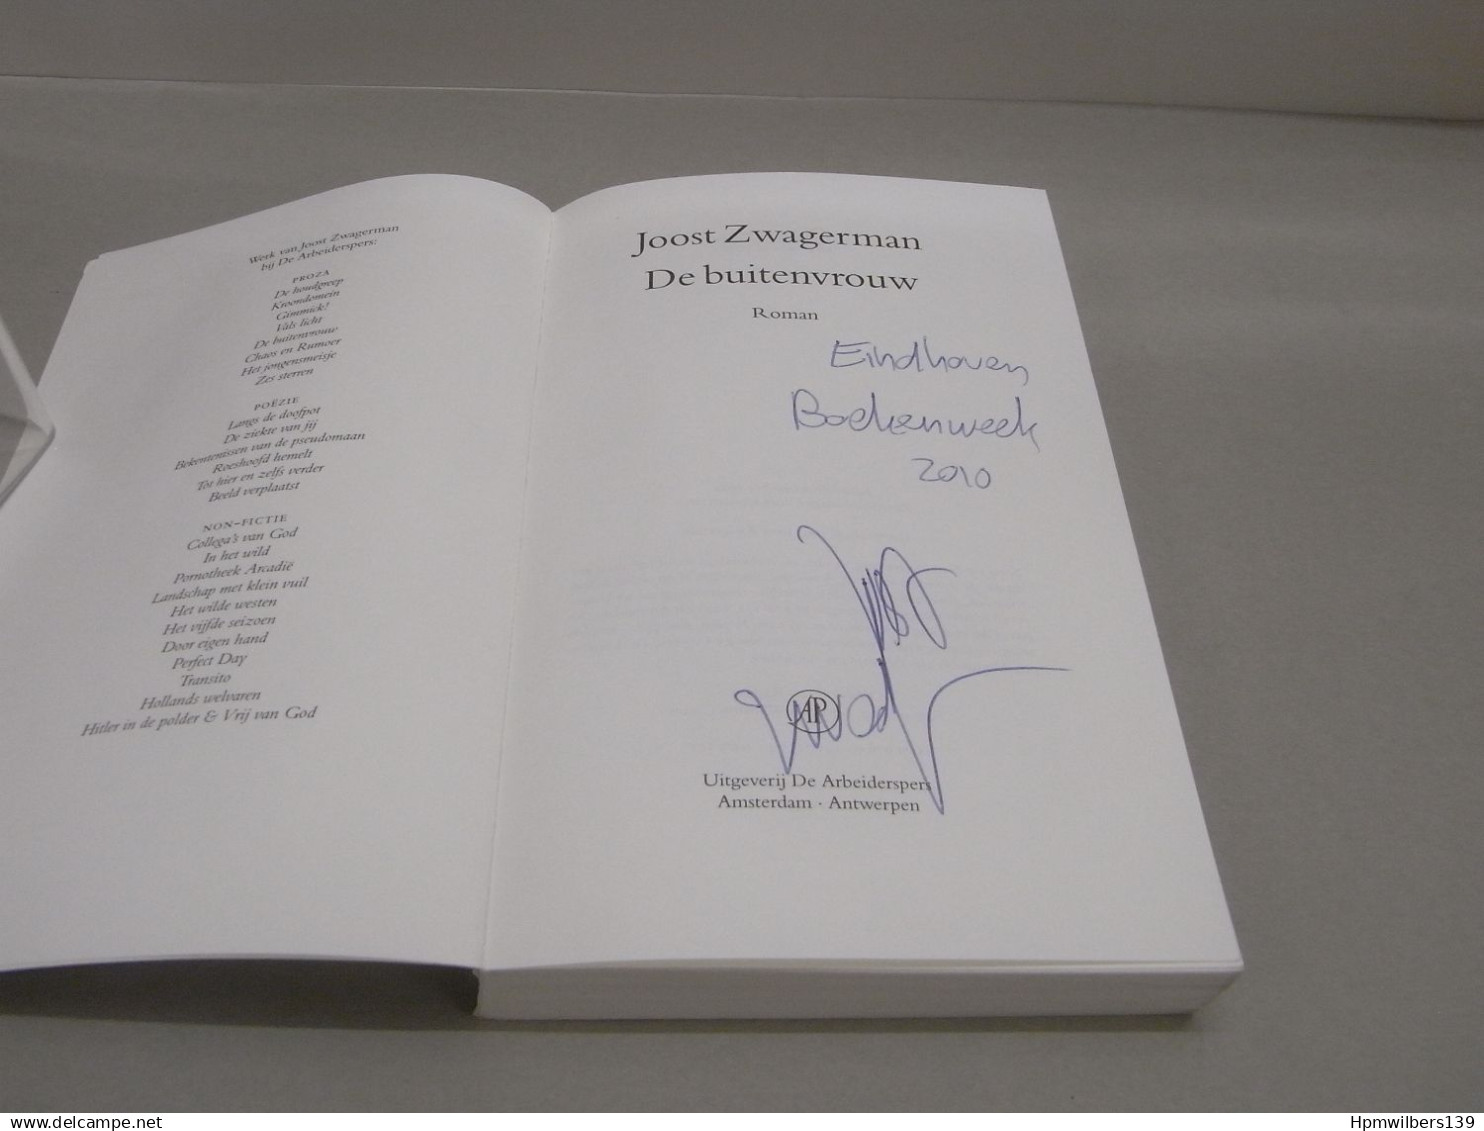 Werk van Joost Zwagerman
bij De Arbeiderspers:
PROZA
De houdgreep
Kroondomein
Gimmick!
Vals licht
De buitenvrouw
Chaos en Rumoer
Het jongensmeisje
Zes sterren
POËZIE
Langs de doofpot
De ziekte van jij
Bekentenissen van de pseudomaan
Roeshoofd hemelt
Tot hier en zelfs verder
Beeld verplaatst
NON-FICTIE
Collega's van God
In het wild
Pornotheek Arcadië
Landschap met klein vuil
Het wilde westen
Het vijfde seizoen
Door eigen hand
Perfect Day
Transito
Hollands welvaren
Hitler in de polder & Vrij van God
Joost Zwagerman
De buitenvrouw
Roman
Eindhoven
Boekenweek
2010
AP
Uitgeverij De Arbeiderspers
Amsterdam · Antwerpen
www.delcampe.net
Hpmwilbers139